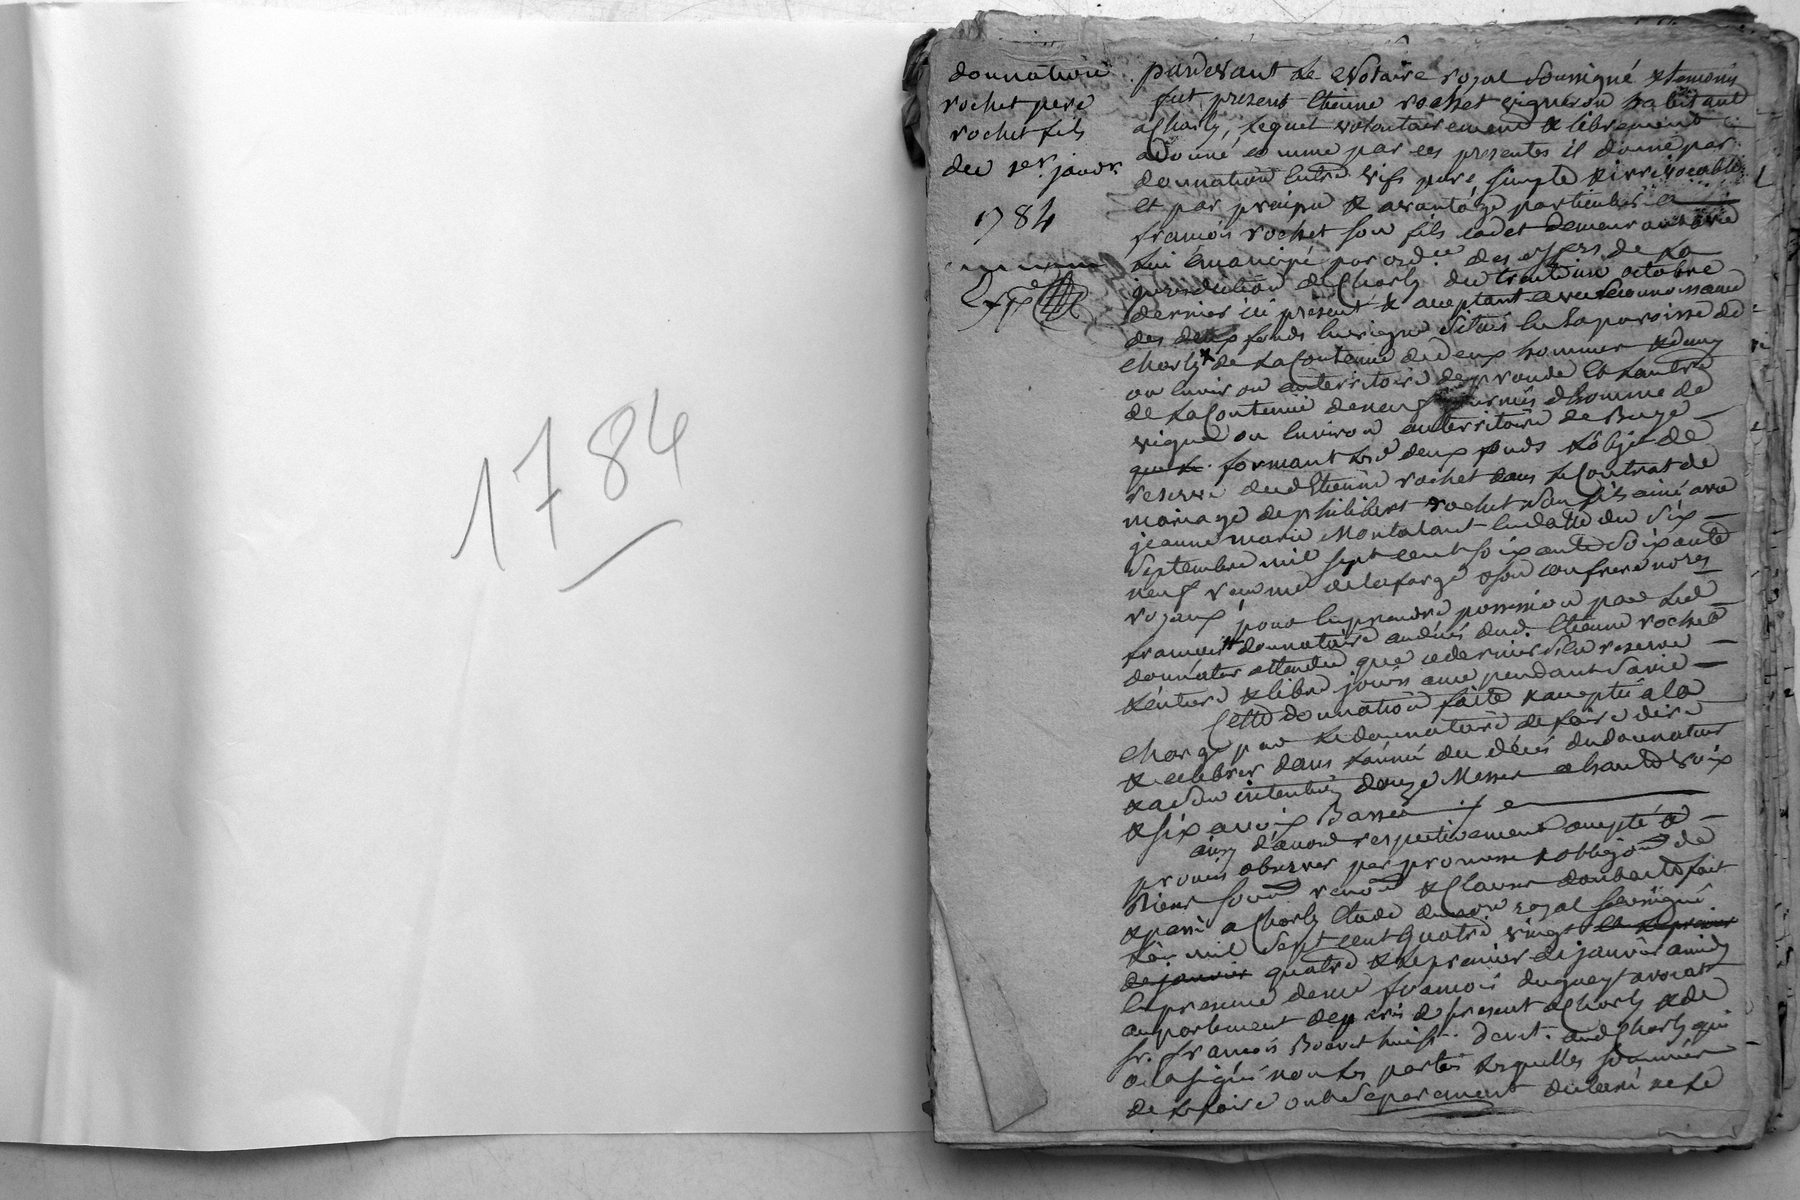 1784
donnation
rochet pere
rochet fils
du 1er. janvr.
1784
pardevant le Notaire royal soussigné & temoins
fut present Etienne rochet vigneron habitant
a Charly, lequel volontairement & librement
a donné comme par ces presentes il donne par
donnation entre vifs pure, simple & irrevocable
et par preciput & avantage particulier a
francois rochet son fils cadet demeurant avec
lui émancipé par ordce des offers de la
jurisdiction de Charly du trente un octobre
dernier ici present & acceptant avec reconnoissance
des deux fonds en vigne situés en la paroisse de
Charly de la Contenue de deux hommes
ou environ au territoire de et l'autre
de la Contenue de neuf d'homme de
vigne ou environ au territoire de
formant les d deux fonds l'objet de
reserve dud Etienne rochet dans le Contrat de
mariage de philibert rochet son fils ainé avec
jeanne marie Montalant en datte du six
septembre mil sept cent soixante soixante
neuf recu me delaforge & son confrere nores
royaux, pour en prendre possession par led
francois donnataire au décès dud. Etienne rochet
donnateur attendu que ce dernier s'en reserve
l'entiere & libre jouissance pendant sa vie
Cette donnation faitte & acceptée a la
charge par le donnataire de faire dire
& celebrer dans l'année du décès du donnateur
& a son intention douze Messes a haute voix
& six a voix Basse
ainsy d'accord respectivement accepté &
promis observer par promesse & obligeon de
Biens soumon renon & Clauses dont acte fait
& passé a Charly Etude du nore royal soussigné
l'an mil sept cent quatre vingt et le premier
de janvier quatre & le premier de janvier a midy
en presence de me francois duguey avocat
au parlement de paris de present a Charly & de
sr. francois huissr. audt Charly qui
ont signé non les parties lesquelles sommées
de le faire ont séparément declaré ne le